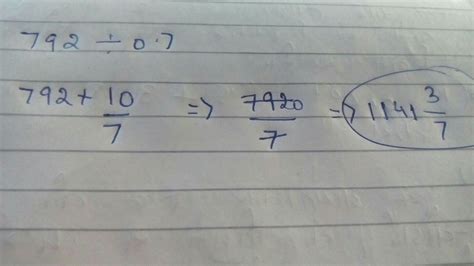 792 ÷ 0.7
792 + 10/7 => 7920/7 => 1141 3/7